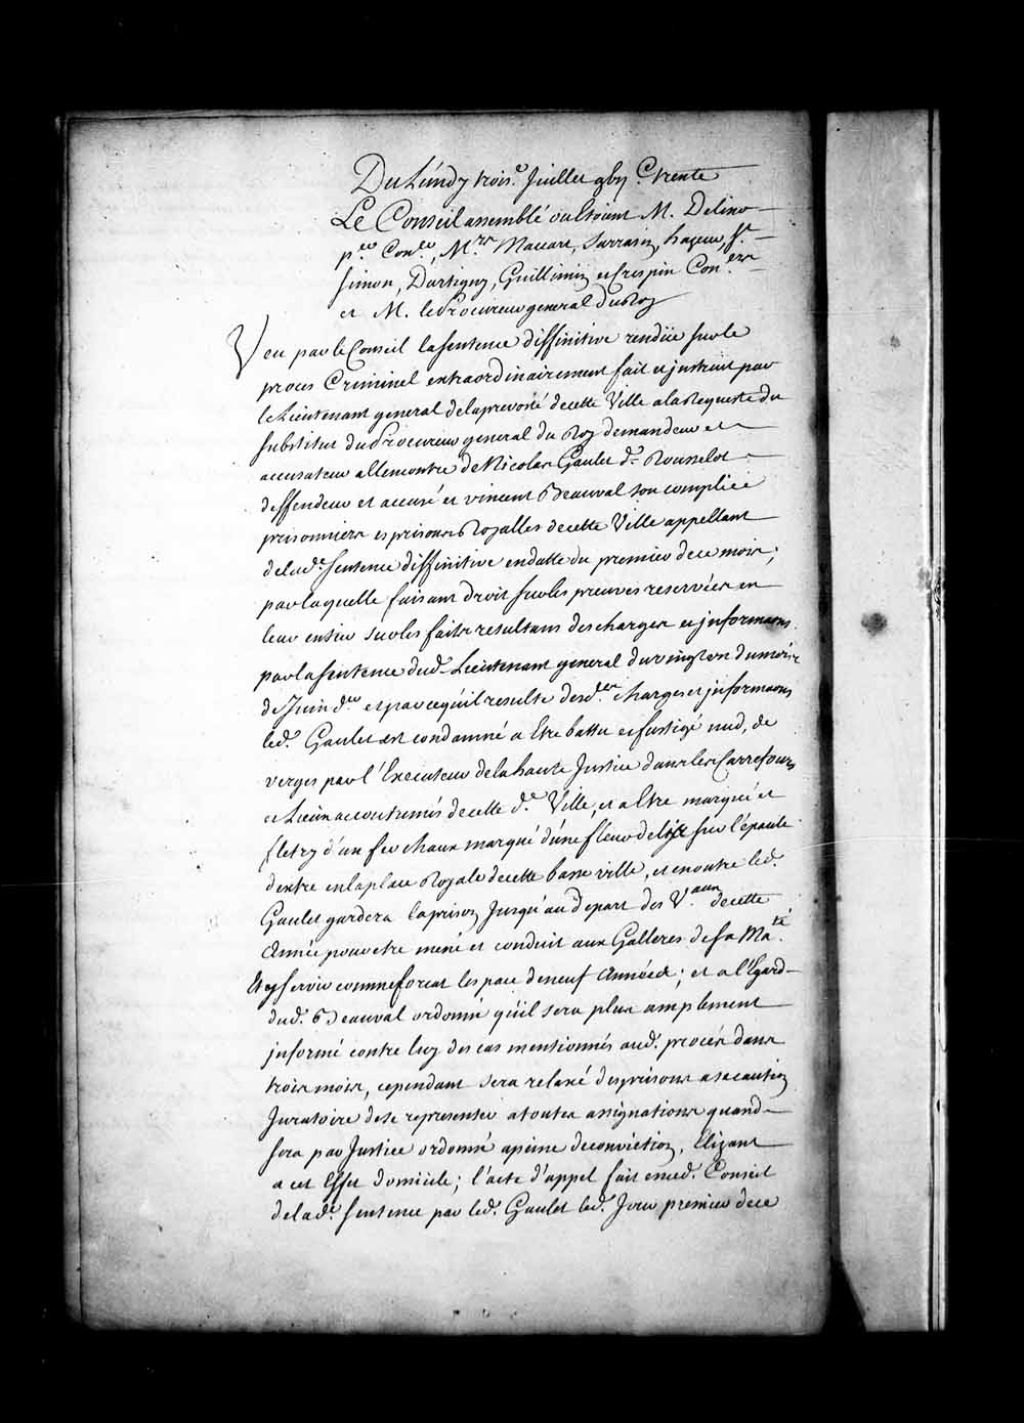 Du Lundy trois.e Juillet gbij.C trente
Le Conseil assemblé ou Etoient M. Delino
p.er Con.er, M.rs Macart, Sarrazin, hazeur, S.t
Simon, Dartigny, Guillimin et Crespin Con.ers
et M. le Procureur general du Roy
Veu par le Conseil la sentence diffinitive rendüe sur le
proces Criminel extraordinairement fait et jnstruit par
le Lieutenant general de la prevosté de cette Ville a la Requeste du
substitut du Procureur general du Roy demandeur et
accusateur allencontre de Nicolas Gaulet d.t Rousselot
deffendeur et accusé et vincent Beauval son complice
prisonniers es prisons Royalles de cette Ville appellant
de lad.e sentence diffinitive en datte du premier de ce mois;
par laquelle faisant droit sur les preuves reservées en
leur entier sur les faits resultans des charges et jnformaons
par la sentence dud. Lieutenant general du vingt du mois
de Juin d.er et par ce qu'il resulte desd.es charges et jnformaons
led. Gaulet est condamné a Etre battu et fustigé nud, de
verges par l'Executeur de la haute Justice dans les Carrefours
et Lieux accoutumés de cette d.e Ville, et a Etre marqué et
fletry d'un fer chaux marqué d'une fleur de lise sur l'épaule
dextre en la place Royale de cette basse ville, et en outre led.
Gaulet gardera la prison Jusqu'au depart des V.aux de cette
Année pour etre mené et conduit aux Galleres de sa Ma.té
et y servir comme forcat lespace de neuf Années; et a l'Egard
dud. Beauval ordonné qu'il sera plus amplement
jnformé contre luy des cas mentionnés aud. procés dans
trois mois, cependant sera relaxé des prisons a sa caution
Juratoire de se representer a toutes assignations quand
sera par Justice ordonné a peine de conviction, Elizant
a cet Effet domicile; l'acte d'appel fait en ced. Conseil
de lad.e sentence par led. Gaulet led. Jour premier de ce